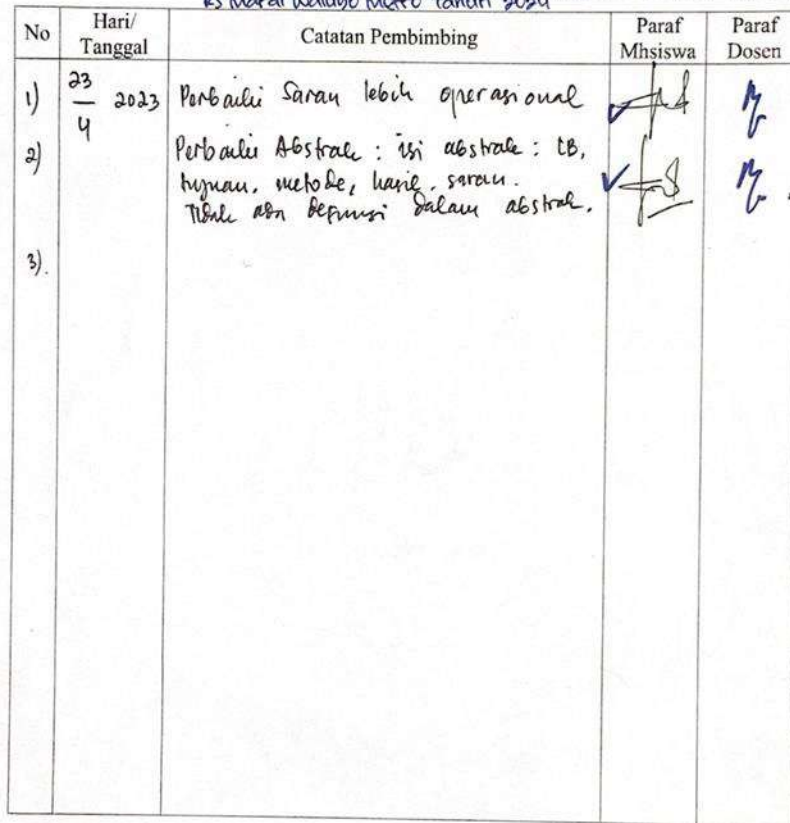 RS Mardi Waluyo Metro Tahun 2024
No Hari/ Tanggal Catatan Pembimbing Paraf Mhsiswa Paraf Dosen
1) 23/4 2023 Perbaiki Saran lebih operasional
2) Perbaiki Abstrak : isi abstrak : LB,
tujuan, metode, hasil, saran.
Tidak ada definisi dalam abstrak.
3).